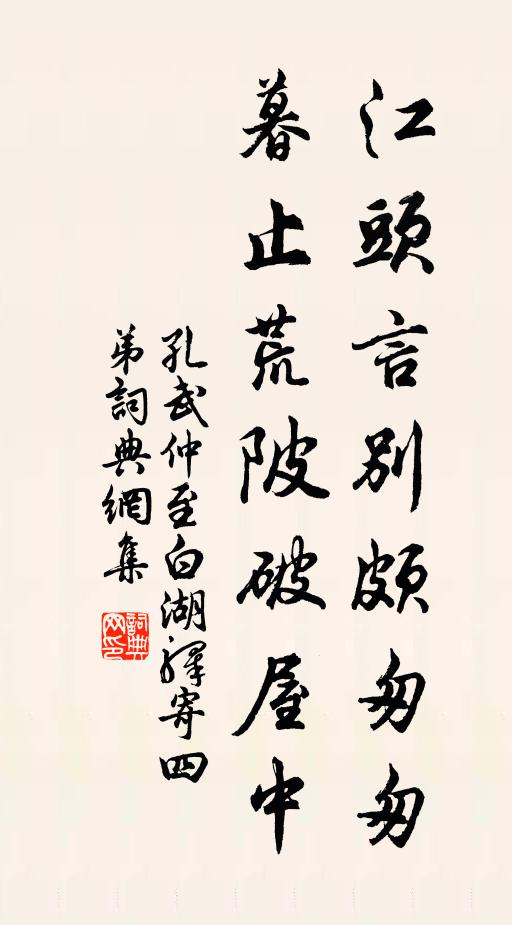 江頭言別頗匆匆
暮止荒陂破屋中
孔武仲至白湖驛寄四
弟詞典網集
詞典網印